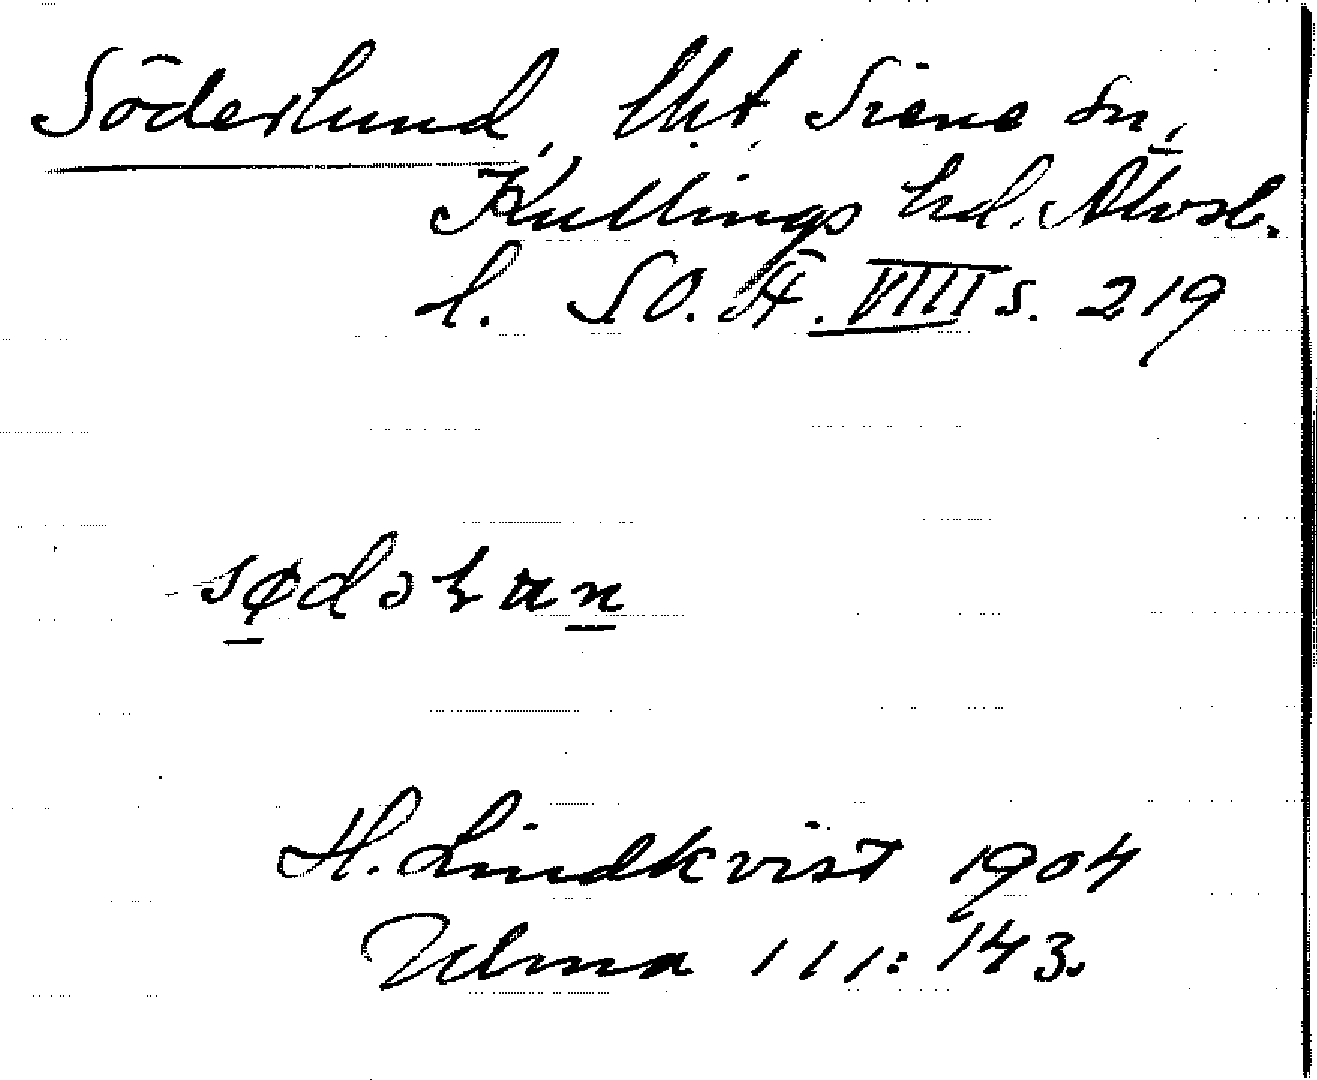 Söderlund, lht, Siene sn,
Kullings hd. Älvsb.
l. SO. Ä. VIII s. 219
H. Lindkvist 1904
Ulma 111:143.